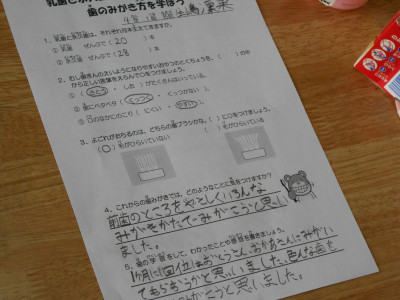 歯のみがき方を学ぼう
1. 乳歯と永久歯は、それぞれ何本生えてきますか。
① 乳歯 ぜんぶで( 20 )本
② 永久歯 ぜんぶで( 28 )本
2. むし歯きんのえいようになりやすいおやつのとくちょうを、( )の中
から正しい言葉をえらんで○をつけましょう。
① ( さとう ・ しお )がたくさんはいっている。
② 歯にベタベタ( くっつく ・ くっつかない )。
③ 口のなかにのこり( にくい ・ やすい )。
3. よごれがおちるのは、どちらの歯ブラシかな。( )に○をつけましょう。
( ○ )毛がひらいていない ( )毛がひらいている
4. これからの歯みがきでは、どのようなことに気をつけますか?
前歯のところをやさしくいろんな
みがきかたでみがこうと思い
ました。
5. 歯の学習をして、わかったことや感想を書きましょう。
1か月に1回位はおとうさん、おかあさんにみがい
てもらおうかと思いました。
みがこうと思いました。